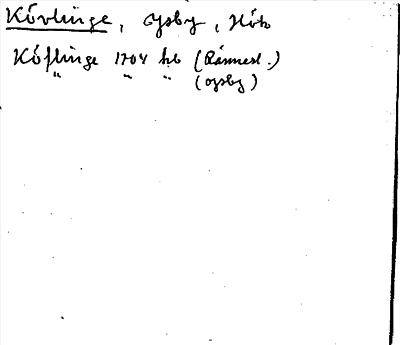 Kövlinge, Gysby, Hök
Köflinge 1704 hb (Räknesl.)
" " " (Gysby)